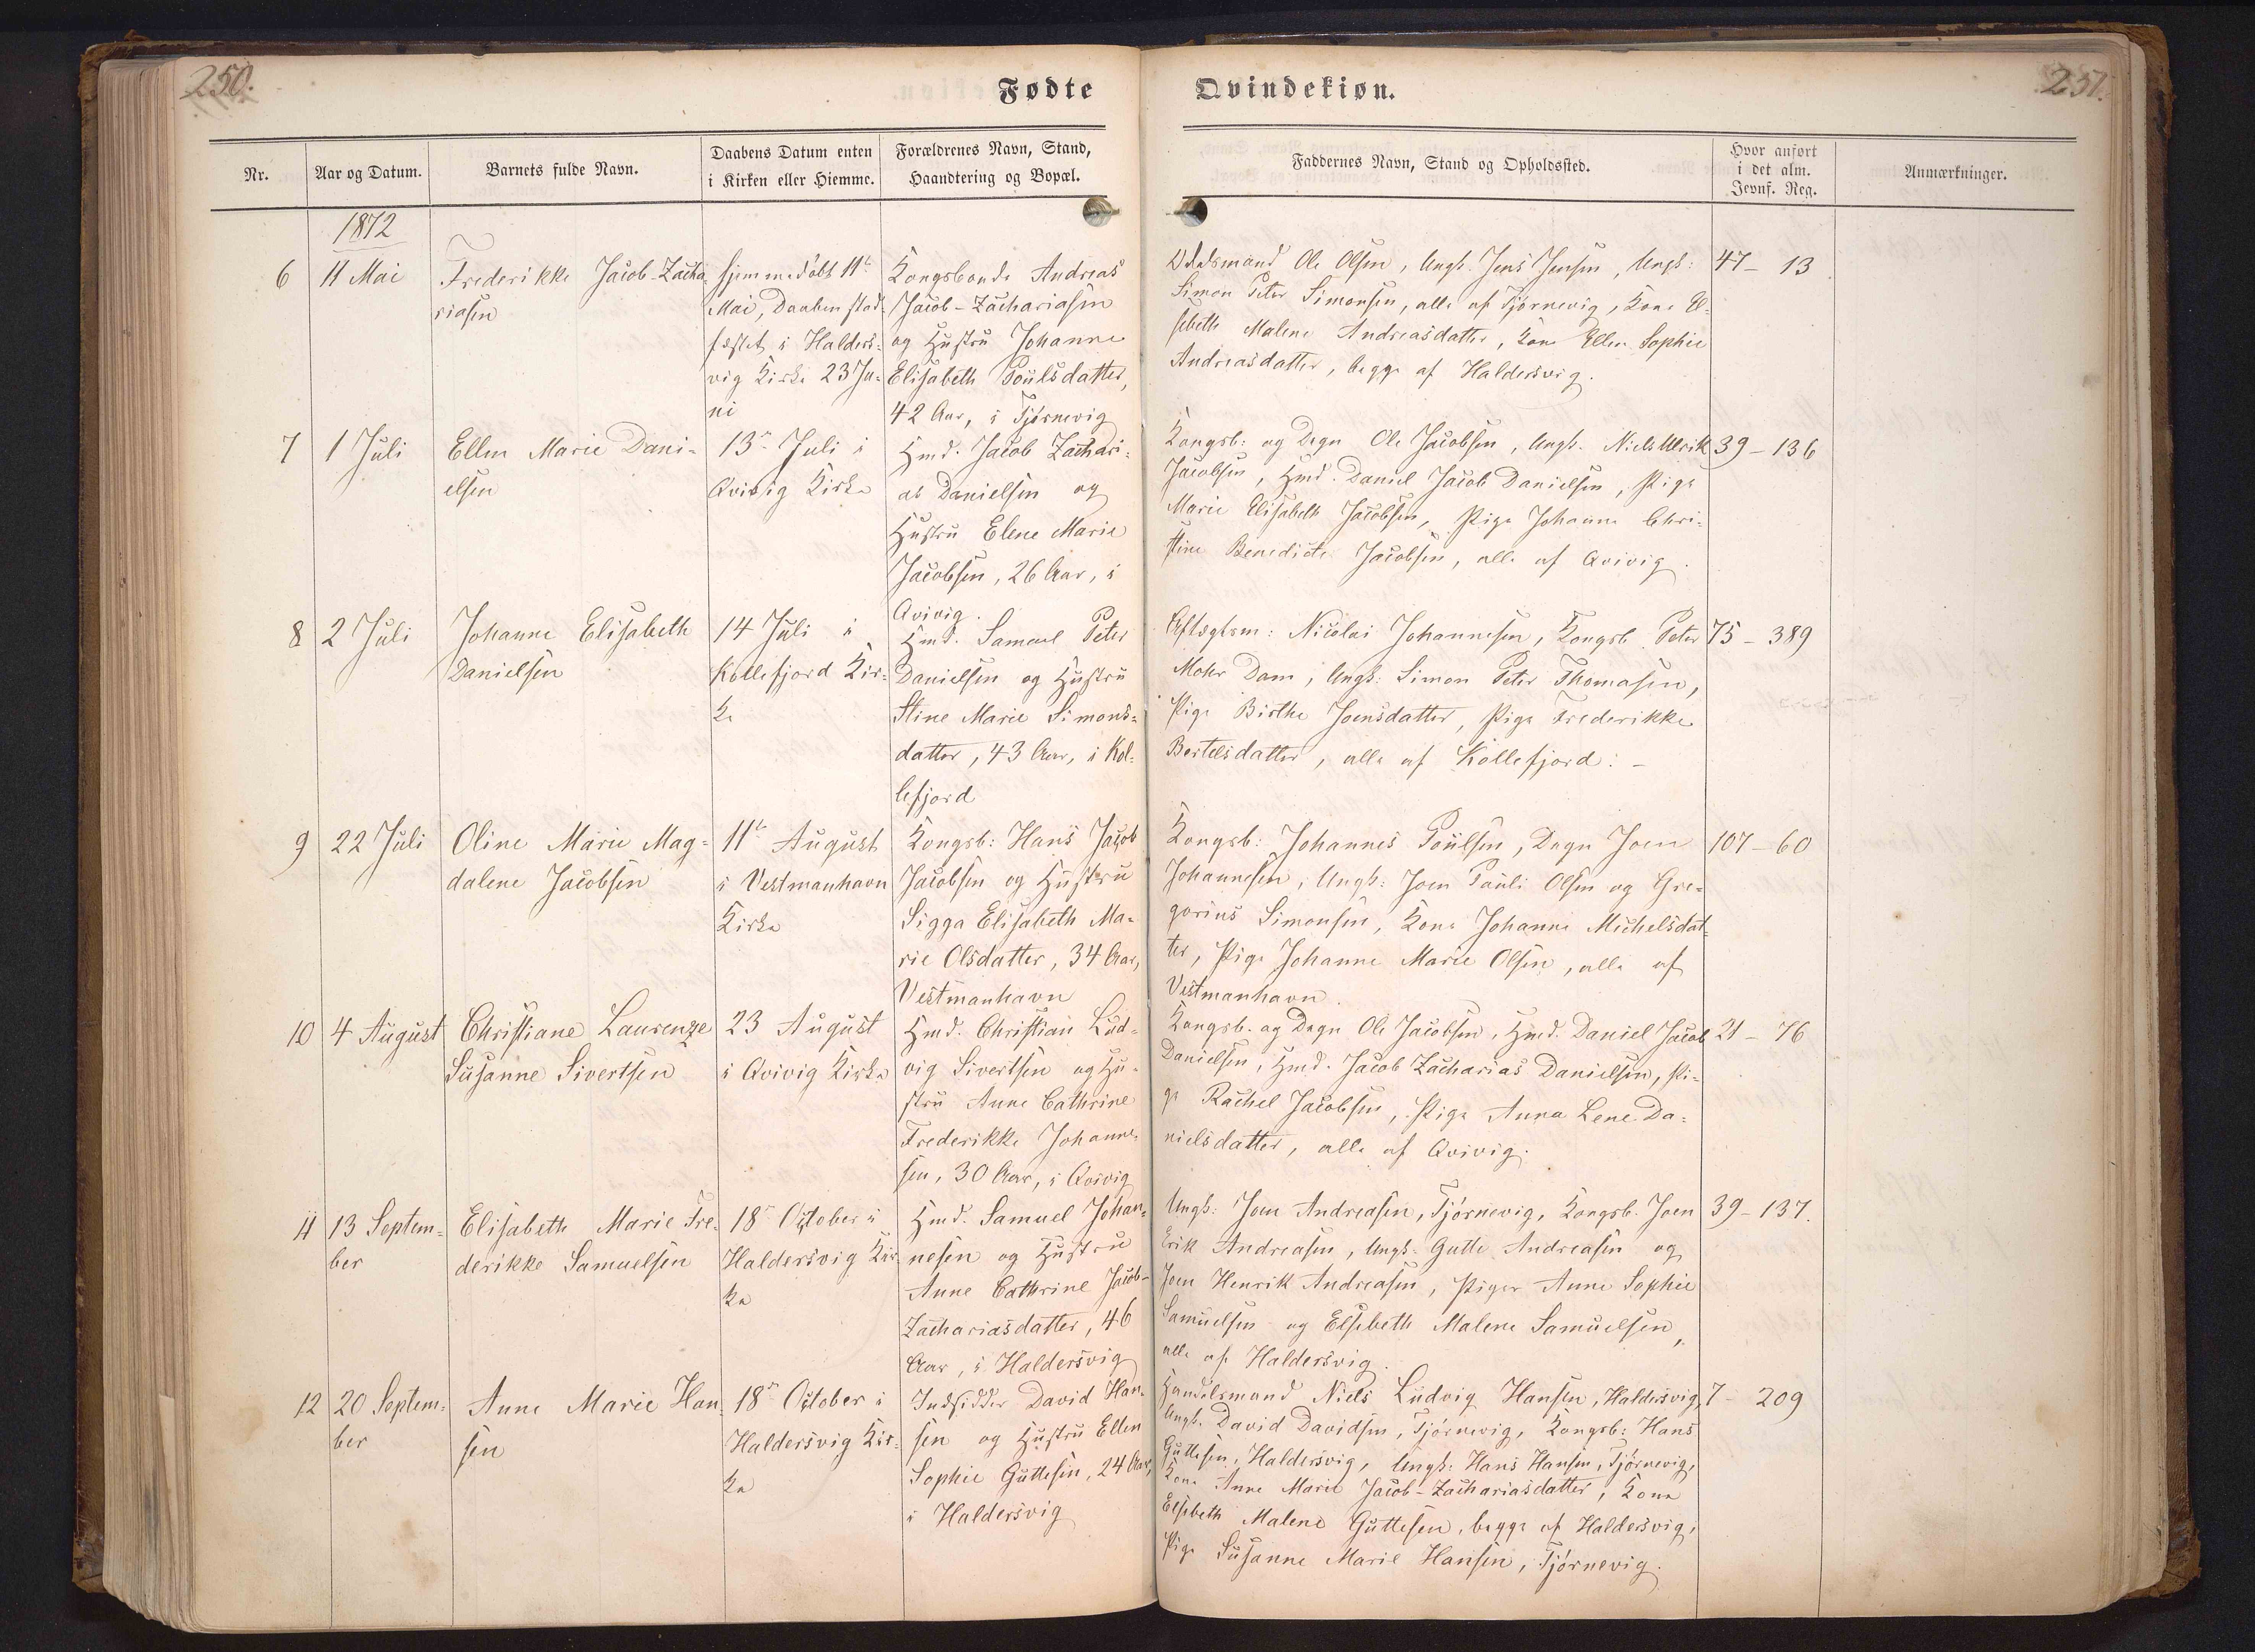 250.
Fødte
Qvindekiøn.
251.
Nr.
Aar og Datum.
Barnets fulde Navn.
Daabens Datum enten
i Kirken eller Hiemme.
Forældrenes Navn, Stand,
Haandtering og Bopæl.
Faddernes Navn, Stand og Opholdssted.
Hvor anført
i det alm.
Jevnf. Reg.
Anmærkninger.
1872
6
11 Mai
Frederikke Jacob-Zacha-
riasen
hjemmedøbt 11te
Mai, Daaben stad-
fæstet i Halders-
vig Kirke 23 Ju-
ni
Kongsbonde Andreas
Jacob-Zachariasen
og Hustru Johanne
Elisabeth Poulsdatter,
42 Aar, i Tjørnevig
Ole Olsen, Ungk. Jens Jensen, Ungk:
Simon Peter Simonsen, alle af Tjørnevig, Kone El-
sebeth Malene Andreasdatter, Kone Ellen Sophie
Andreasdatter, begge af Haldersvig.
47 - 13
7
1 Juli
Ellen Marie Dani-
elsen
13de Juli i
Qvivig Kirke
Hmd. Jacob Zachari-
as Danielsen og
Hustru Elene Marie
Jacobsen, 26 Aar, i
Qvivig.
Kongsb: og Degn Ole Jacobsen, Ungk. Niels Ulrik
Jacobsen, Hmd. Daniel Jacob Danielsen, Pige
Marie Elisabeth Jacobsen, Pige Johanne Chri-
stine Benedicte Jacobsen, alle af Qvivig.
39 - 136
8
2 Juli
Johanne Elisabeth
Danielsen
14 Juli i
Kollefjord Kir-
ke
Hmd. Samuel Peter
Danielsen og Hustru
Stine Marie Simons-
datter, 43 Aar, i Kol-
lefjord
Aftægtsm: Nicolai Johannesen, Kongsb. Peter
Mohr Dam, Ungk: Simon Peter Thomasen,
Pige Birthe Joensdatter, Pige Frederikke
Bertelsdatter, alle af Kollefjord. -
75 - 389
9
22 Juli
Oline Marie Mag-
dalene Jacobsen
11te August
i Vestmanhavn
Kirke
Kongsb: Hans Jacob
Jacobsen og Hustru
Sigga Elisabeth Ma-
rie Olsdatter, 34 Aar,
Vestmanhavn
Kongsb: Johannes Poulsen, Degn Joen
Johannesen, Ungk: Joen Pauli Olsen og Gre-
gorius Simonsen, Kone Johanne Michelsdat-
ter, Pige Johanne Marie Olsen, alle af
Vestmanhavn.
107 - 60
10
4 August
Christiane Laurenze
Susanne Sivertsen
23 August
i Qvivig Kirke
Hmd. Christian Lud-
vig Sivertsen og Hu-
stru Anne Cathrine
Frederikke Johanne-
sen, 30 Aar, i Qvivig
Kongsb. og Degn Ole Jacobsen, Hmd. Daniel Jacob
Danielsen, Hmd. Jacob Zacharias Danielsen, Pi-
ge Rachel Jacobsen, Pige Anna Lene Da-
nielsdatter, alle af Qvivig.
21 - 76
11
13 Septem-
ber
Elisabeth Marie Fre-
derikke Samuelsen
18de October i
Haldersvig Kir-
ke
Hmd. Samuel Johan-
nesen og Hustru
Anne Cathrine Jacob-
Zachariasdatter, 46
Aar, i Haldersvig
Ungk: Joen Andreasen, Tjørnevig, Kongsb. Joen
Erik Andreasen, Ungk: Gutte Andreasen og
Joen Henrik Andreasen, Piger Anne Sophie
Samuelsen og Elsebeth Malene Samuelsen,
alle af Haldersvig.
39 - 137.
12
20 Septem-
ber
Anne Marie Han-
sen
18de October i
Haldersvig Kir-
ke
Indsidder David Han-
sen og Hustru Ellen
Sophie Guttesen, 24 Aar,
i Haldersvig
Handelsmand Niels Ludvig Hansen, Haldersvig,
Ungk. David Davidsen, Tjørnevig, Kongsb: Hans
Guttesen, Haldersvig, Ungk: Hans Hansen, Tjørnevig,
Kone Anne Marie Jacob-Zachariasdatter, Kone
Elsebeth Malene Guttesen, begge af Haldersvig,
Pige Susanne Marie Hansen, Tjørnevig.
7 - 209